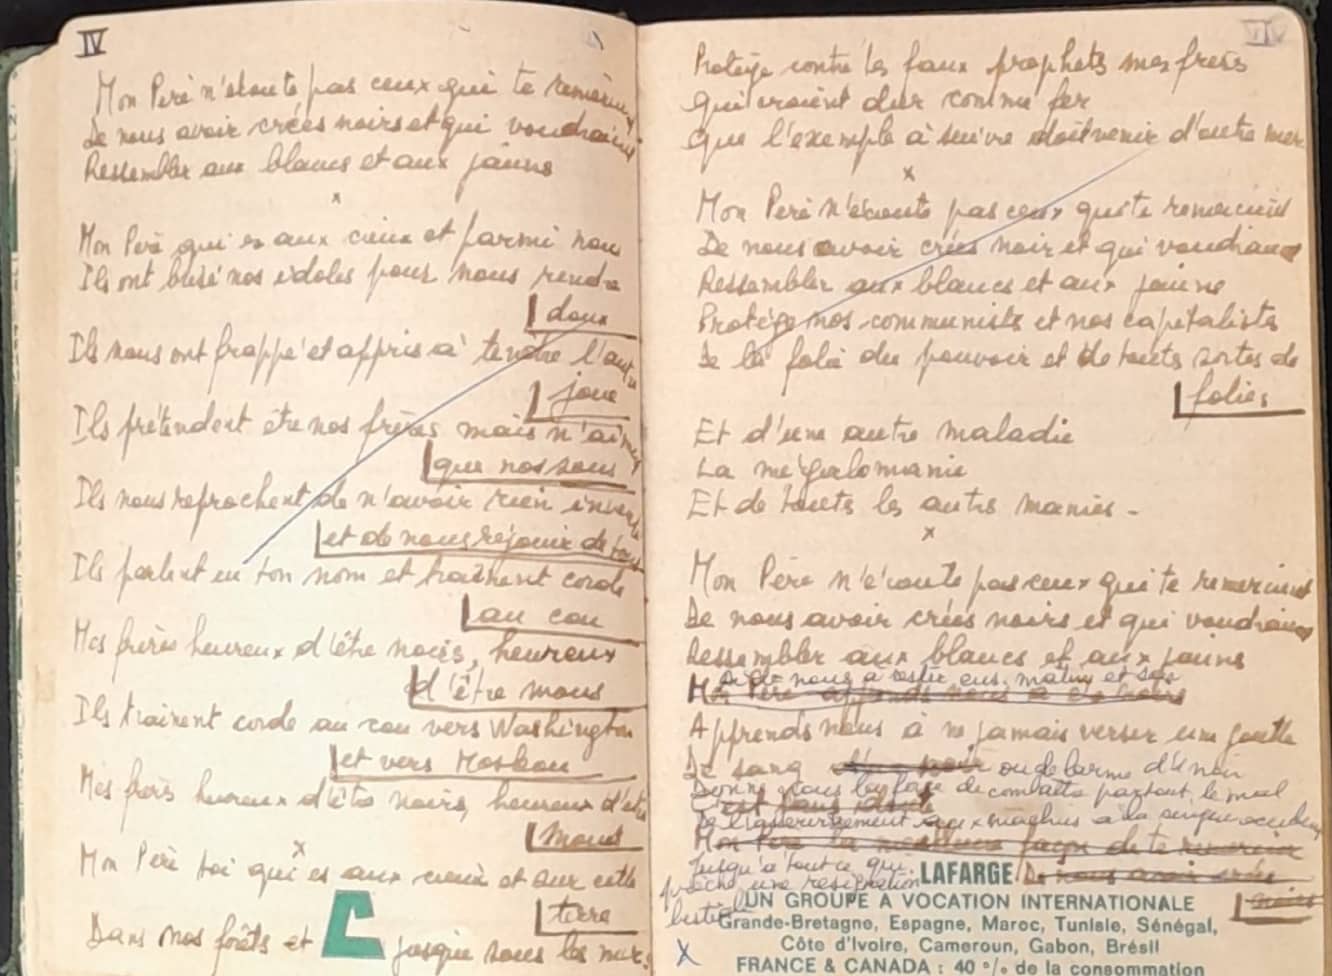 IV
Mon Père n'écoute pas ceux qui te remercient
De nous avoir créés noirs et qui voudraient
Ressembler aux blancs et aux jaunes
x
Mon Père qui es aux cieux et parmi nous
Ils ont brisé nos idoles pour nous rendre
doux
Ils nous ont frappé et appris à tendre l'autre
joue
Ils prétendent être nos frères mais n'aiment
que nos sous
Ils nous reprochent de n'avoir rien inventé
et de nous réjouir de tout
Ils parlent en ton nom et traînent corde
au cou
Mes frères heureux d'être noirs, heureux
d'être mous
Ils traînent corde au cou vers Washington
et vers Moskou
Mes frères heureux d'être noirs, heureux d'être
mous
x
Mon Père toi qui es aux cieux et sur cette
terre
Dans nos forêts et jusque sous les mers
Protège contre les faux prophètes mes frères
Qui croient dur comme fer
Que l'exemple à suivre doit venir d'outre mer
x
Mon Père n'écoute pas ceux qui te remercient
De nous avoir créés noir et qui voudraient
Ressembler aux blancs et aux jaune
Protège nos communists et nos capitalistes
De la folie du pouvoir et de toutes sortes de
folies
Et d'une autre maladie
La mégalomanie
Et de toutes les autres manies -
x
Mon Père n'écoute pas ceux qui te remercient
De nous avoir créés noirs et qui voudraient
Ressembler aux blancs et aux jaunes
nous à rester eux
Mon Père apprends nous à
Apprends nous à ne jamais verser une goutte
De sang ou de larme d'un noir
Donne nous la force de combattre partout le mal
C'est
De l'asservissement aux machines à la
Mon Père la meilleure façon de te remercier
Jusqu'à tout ce qui
prêche une résignation
LAFARGE De nous avoir créés
noirs
bestiale
UN GROUPE A VOCATION INTERNATIONALE
Grande-Bretagne, Espagne, Maroc, Tunisie, Sénégal,
Côte d'Ivoire, Cameroun, Gabon, Brésil
x
FRANCE & CANADA : 40 % de la consommation